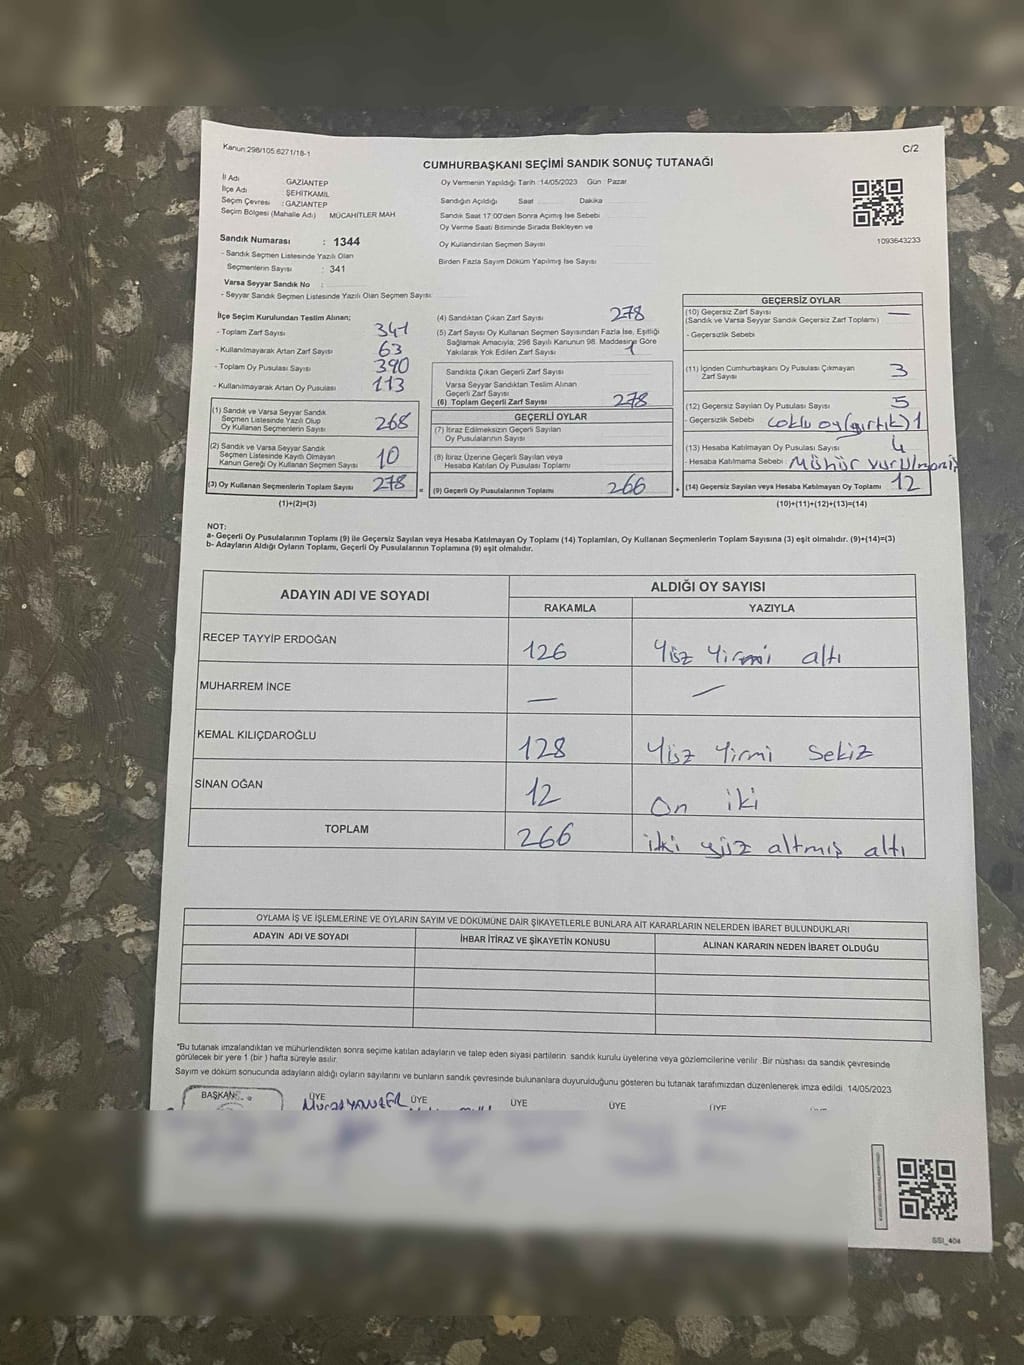 Kanun:298/105.6271/18-1
C/2
CUMHURBAŞKANI SEÇİMİ SANDIK SONUÇ TUTANAĞI
İl Adı GAZİANTEP
İlçe Adı ŞEHİTKAMİL
Seçim Çevresi : GAZİANTEP
Seçim Bölgesi (Mahalle Adı) MÜCAHİTLER MAH
Sandık Numarası : 1344
- Sandık Seçmen Listesinde Yazılı Olan
Seçmenlerin Sayısı : 341
Varsa Seyyar Sandık No :
- Seyyar Sandık Seçmen Listesinde Yazılı Olan Seçmen Sayısı:
Oy Vermenin Yapıldığı Tarih :14/05/2023 Gün Pazar
Sandığın Açıldığı Saat Dakika
Sandık Saat 17:00'den Sonra Açımış İse Sebebi
Oy Verme Saati Bitiminde Sırada Bekleyen ve
Oy Kullandırılan Seçmen Sayısı
Birden Fazla Sayım Döküm Yapılmış İse Sayısı
1093643233
İlçe Seçim Kurulundan Teslim Alınan;
- Toplam Zarf Sayısı 341
- Kullanılmayarak Artan Zarf Sayısı 63
- Toplam Oy Pusulası Sayısı 390
- Kullanılmayarak Artan Oy Pusulası 113
(1) Sandık ve Varsa Seyyar Sandık
Seçmen Listesinde Yazılı Olup
Oy Kullanan Seçmenlerin Sayısı 268
(2) Sandık ve Varsa Seyyar Sandık
Seçmen Listesinde Kayıtlı Olmayan
Kanun Gereği Oy Kullanan Seçmen Sayısı 10
(3) Oy Kullanan Seçmenlerin Toplam Sayısı 278
(1)+(2)=(3)
=
(4) Sandıktan Çıkan Zarf Sayısı 278
(5) Zarf Sayısı Oy Kullanan Seçmen Sayısından Fazla İse, Eşitliği
Sağlamak Amacıyla; 298 Sayılı Kanunun 98. Maddesine Göre
Yakılarak Yok Edilen Zarf Sayısı
Sandıkta Çıkan Geçerli Zarf Sayısı
Varsa Seyyar Sandıktan Teslim Alınan
Geçerli Zarf Sayısı
(6) Toplam Geçerli Zarf Sayısı 278
GEÇERLİ OYLAR
(7) İtiraz Edilmeksizin Geçerli Sayılan
Oy Pusulalarının Sayısı
(8) İtiraz Üzerine Geçerli Sayılan veya
Hesaba Katılan Oy Pusulası Toplamı
(9) Geçerli Oy Pusulalarının Toplamı 266
+
GEÇERSİZ OYLAR
(10) Geçersiz Zarf Sayısı —
(Sandık ve Varsa Seyyar Sandık Geçersiz Zarf Toplamı)
- Geçersizlik Sebebi
(11) İçinden Cumhurbaşkanı Oy Pusulası Çıkmayan
Zarf Sayısı 3
(12) Geçersiz Sayılan Oy Pusulası Sayısı 5
- Geçersizlik Sebebi Çoklu oy (yırtık) 1
(13) Hesaba Katılmayan Oy Pusulası Sayısı 4
- Hesaba Katılmama Sebebi Mühür
(14) Geçersiz Sayılan veya Hesaba Katılmayan Oy Toplamı 12
(10)+(11)+(12)+(13)=(14)
NOT:
a- Geçerli Oy Pusulalarının Toplamı (9) ile Geçersiz Sayılan veya Hesaba Katılmayan Oy Toplamı (14) Toplamları, Oy Kullanan Seçmenlerin Toplam Sayısına (3) eşit olmalıdır. (9)+(14)=(3)
b- Adayların Aldığı Oyların Toplamı, Geçerli Oy Pusulalarının Toplamına (9) eşit olmalıdır.
ADAYIN ADI VE SOYADI ALDIĞI OY SAYISI
RAKAMLA YAZIYLA
RECEP TAYYİP ERDOĞAN 126 Yüz Yirmi altı
MUHARREM İNCE — —
KEMAL KILIÇDAROĞLU 128 Yüz Yirmi Sekiz
SİNAN OĞAN 12 On iki
TOPLAM 266 iki yüz altmış altı
OYLAMA İŞ VE İŞLEMLERİNE VE OYLARIN SAYIM VE DÖKÜMÜNE DAİR ŞİKAYETLERLE BUNLARA AİT KARARLARIN NELERDEN İBARET BULUNDUKLARI
ADAYIN ADI VE SOYADI İHBAR İTİRAZ VE ŞİKAYETİN KONUSU ALINAN KARARIN NEDEN İBARET OLDUĞU
*Bu tutanak imzalandıktan ve mühürlendikten sonra seçime katılan adayların ve talep eden siyasi partilerin sandık kurulu üyelerine veya gözlemcilerine verilir. Bir nüshası da sandık çevresinde
görülecek bir yere 1 (bir) hafta süreyle asılır.
Sayım ve döküm sonucunda adayların aldığı oyların sayılarını ve bunların sandık çevresinde bulunanlara duyurulduğunu gösteren bu tutanak tarafımızdan düzenlenerek imza edildi. 14/05/2023
BAŞKAN ÜYE ÜYE ÜYE ÜYE ÜYE
SSI_404